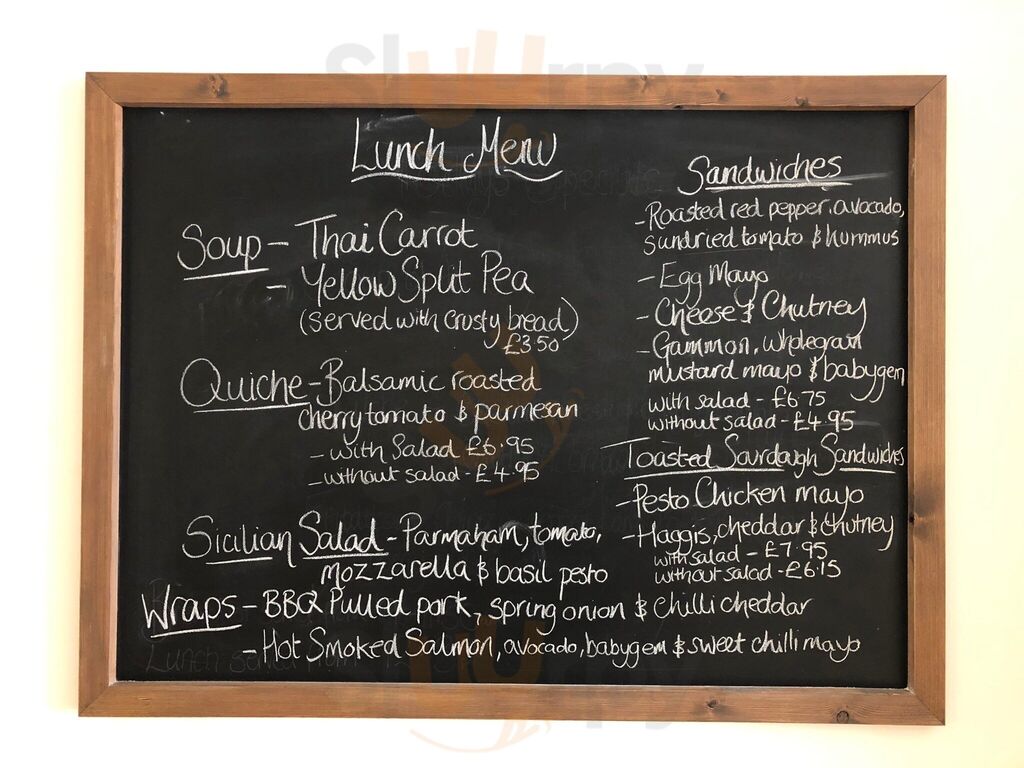 Lunch Menu
Soup - Thai Carrot
- Yellow Split Pea
(served with crusty bread)
£3.50
Quiche - Balsamic roasted
cherry tomato & parmesan
- with Salad £6.95
- without salad - £4.95
Sicilian Salad - Parmaham, tomato,
mozzarella & basil pesto
Wraps - BBQ Pulled pork, spring onion & chilli cheddar
- Hot Smoked Salmon, avocado, babygem & sweet chilli mayo
Sandwiches
- Roasted red pepper, avocado,
sundried tomato & hummus
- Egg Mayo
- Cheese & Chutney
- Gammon, wholegrain
mustard mayo & babygem
with salad - £6.75
without salad - £4.95
Toasted Sourdough Sandwiches
- Pesto Chicken mayo
- Haggis, cheddar & chutney
with salad - £7.95
without salad - £6.15
sluurpy